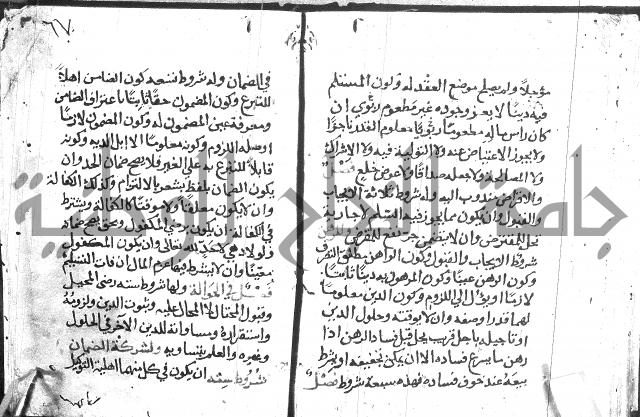 مؤجلا ولم يصلح موضع العقد له وكون المسلم
فيه دينا لا يعز وجوده غير مطعوم ربوي ان
كان راس ماله مطعوما ربويا معلوم القدر ناجزا
ولا يجوز الاعتياض عنه ولا التولية فيه ولا الاشراك
ولا المصالحة ولا يجعله صداقا ولا عوض خلع فصل
والاقراض مندوب اليه وله شروط ثلاثة الايجاب
والقبول وان يكون مما يجوز فيه السلم لا جارية
تحل للمقترض وان لا يتضمن جر نفع المقرض
شروط الايجاب والقبول وكون الراهن مطلق التصرف
وكون الرهن عينا وكون المرهون به دينا ثابتا
لازما او يؤل الى اللزوم وكون الدين معلوما
لهما قدرا وصفة وان لا يوقته وحلول الدين
او تاجيله باجل قريب يحل قبل فساد الرهن اذا
رهن ما يسرع فساده الا ان يمكن تجفيفه او يشرط
بيعه عند خوف فساده فهذه سبعة شروط فصل
٦٧
في الضمان وله شروط تسعة كون الضامن اهلا
للتبرع وكون المضمون حقا ثابتا باعتراف الضامن
ومعرفة عين المضمون له وكون المضمون لازما
او صله اللزوم وكونه معلوما الا ابل الدية وكونه
قابلا للتبرع به على الغير فلا يصح ضمان الحد وان
يكون الضمان بلفظ يشعر بالالتزام وكذلك الكفالة
وان لا يكون معلقا ولا موقتا كالكفالة ويشترط
في الكفالة ان يكون برضى المكفول وبحق يصح ضمانه
ولو لادمي لا حد لله تعالى وان يكون المكفول
معينا وان لا يشترط فيها غرم المال ان فات التسليم
فصل في الحوالة ولها شروط ستة رضى المحيل
وقبول المحتال لا المحال عليه وثبوت الدين ولزومه
واستقراره ومساواته للدين الاخر في الحلول
وغيره والعلم بتساويه ولشركة الضمان
شروط ستة ان يكون في كل منهما اهلية التوكيل
جامعة النجاح الوطنية